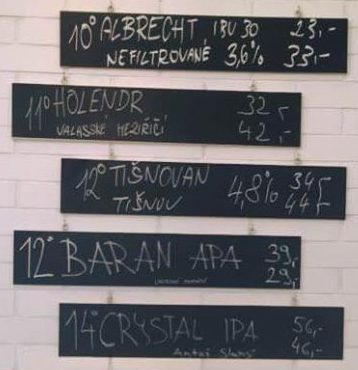 10° ALBRECHT, IBU 30 23,-
NEFILTROVANÉ 3,6% 33,-
11° HOLENDR 32,-
VALAŠSKÉ MEZIŘÍČÍ 42,-
12° TIŠNOVAN 4,8% 34,-
TIŠNOV 44,-
12° BARAN APA 39,-
29,-
14° CRYSTAL IPA 56,-
Antoš Slaný 46,-